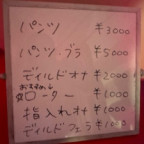 パンツ ¥3000
パンツ、ブラ ¥5000
ディルドオナ ¥2000
おすすめ
ローター ¥1000
指入れオナ ¥1000
ディルドフェラ ¥1000